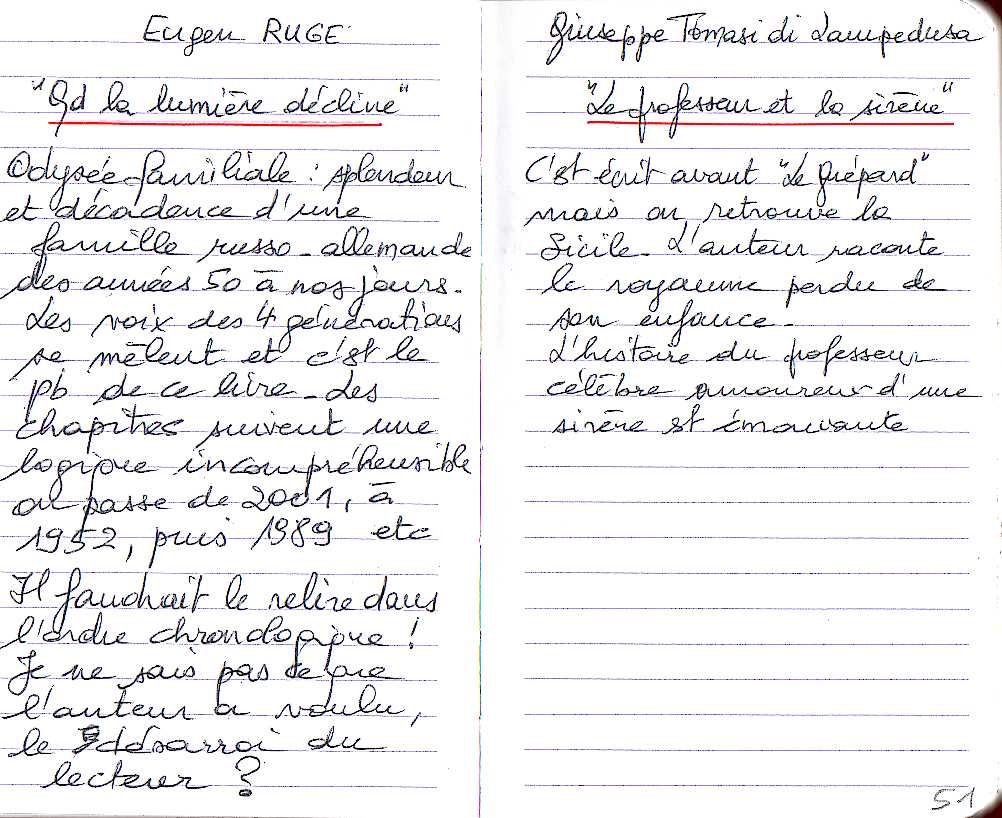 Eugen RUGE
"Qd la lumière décline"
Odysée familiale : splendeur
et décadence d'une
famille russo-allemande
des années 50 à nos jours.
Les voix des 4 générations
se mêlent et c'est le
pb de ce livre. Les
chapitres suivent une
logique incompréhensible
on passe de 2001, à
1952, puis 1989 etc
Il faudrait le relire dans
l'ordre chronologique !
Je ne sais pas ce que
l'auteur a voulu,
le désarroi du
lecteur ?
Giuseppe Tomasi di Lampedusa
"Le professeur et la sirène"
C'est écrit avant "Le Guépard"
mais on retrouve la
Sicile. L'auteur raconte
le royaume perdu de
son enfance.
L'histoire du professeur
célèbre amoureux d'une
sirène est émouvante
51